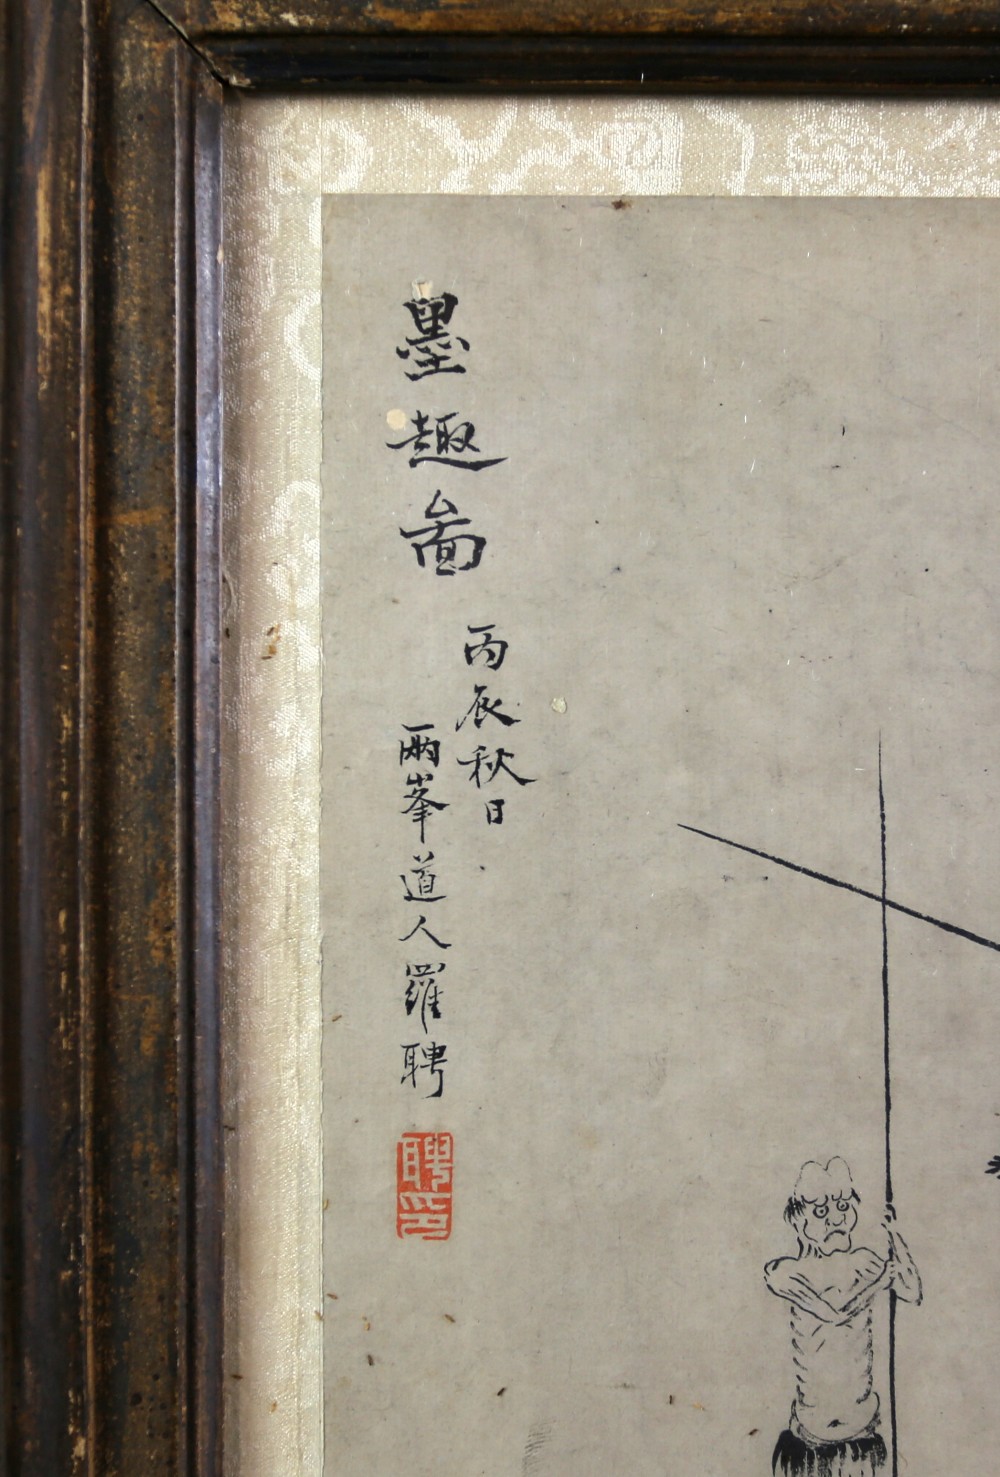 墨趣啚
丙辰秋日
兩峯道人羅聘
聘印